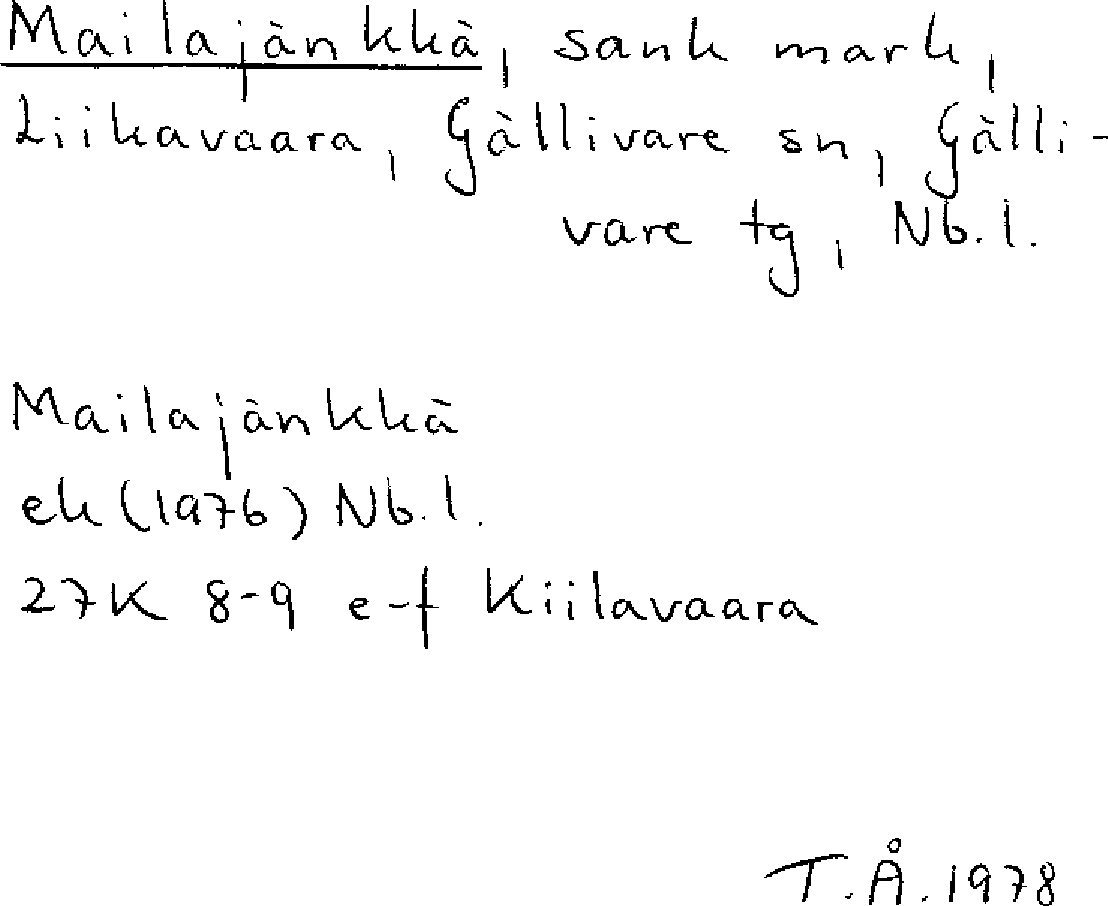 Mailajänkkä, sank mark,
Liikavaara, Gällivare sn, Gälli-
vare tg, Nb. l.
Mailajänkkä
ek (1976) Nb. l.
27K 8-9 e-f Kiilavaara
T.Å. 1978